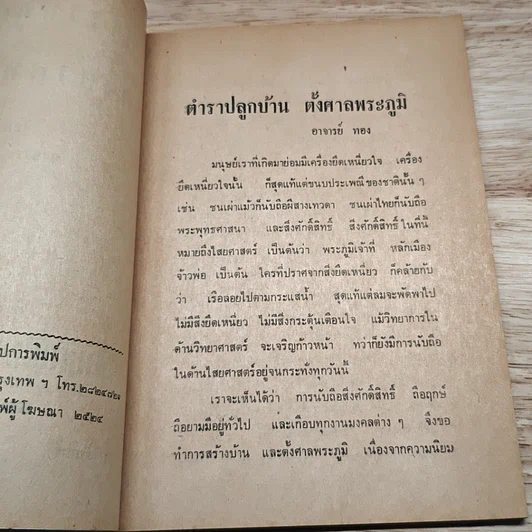 ปการพิมพ์
รุงเทพ ฯ โทร.
พ์ผู้โฆษณา ๒๕๒๔
ตำราปลูกบ้าน ตั้งศาลพระภูมิ
อาจารย์ ทอง
มนุษย์เราที่เกิดมาย่อมมีเครื่องยึดเหนี่ยวใจ เครื่อง
ยึดเหนี่ยวใจนั้น ก็สุดแท้แต่ขนบประเพณีของชาตินั้น ๆ
เช่น ชนเผ่าแม้วก็นับถือผีสางเทวดา ชนเผ่าไทยก็นับถือ
พระพุทธศาสนา และสิ่งศักดิ์สิทธิ์ สิ่งศักดิ์สิทธิ์ในที่นี้
หมายถึงไสยศาสตร์ เป็นต้นว่า พระภูมิเจ้าที่ หลักเมือง
จ้าวพ่อ เป็นต้น ใครที่ปราศจากสิ่งยึดเหนี่ยว ก็คล้ายกับ
ว่า เรือลอยไปตามกระแสน้ำ สุดแท้แต่ลมจะพัดพาไป
ไม่มีสิ่งยึดเหนี่ยว ไม่มีสิ่งกระตุ้นเตือนใจ แม้วิทยาการใน
ด้านวิทยาศาสตร์ จะเจริญก้าวหน้า ทว่าก็ยังมีการนับถือ
ในด้านไสยศาสตร์อยู่จนกระทั่งทุกวันนี้
เราจะเห็นได้ว่า การนับถือสิ่งศักดิ์สิทธิ์ ถือฤกษ์
ถือยามมีอยู่ทั่วไป และเกือบทุกงานมงคลต่าง ๆ จึงขอ
ทำการสร้างบ้าน และตั้งศาลพระภูมิ เนื่องจากความนิยม